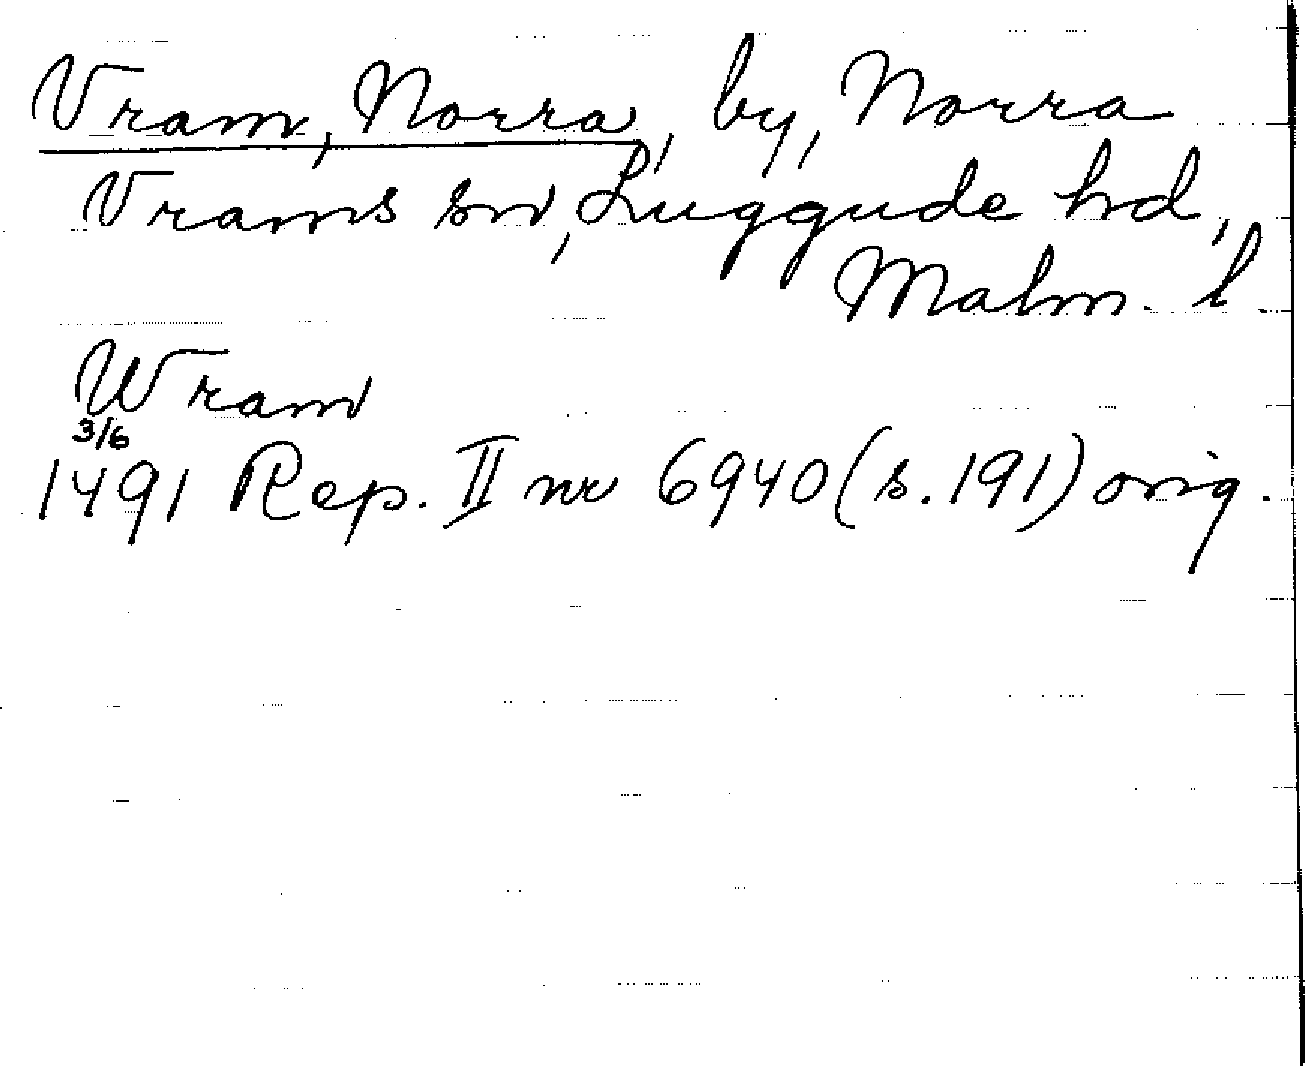 Vram, Norra, by, Norra
Vrams sn, Luggude hd,
Malm. l.
Wram
3/6
1491 Rep. II nr 6940 (s. 191) orig.